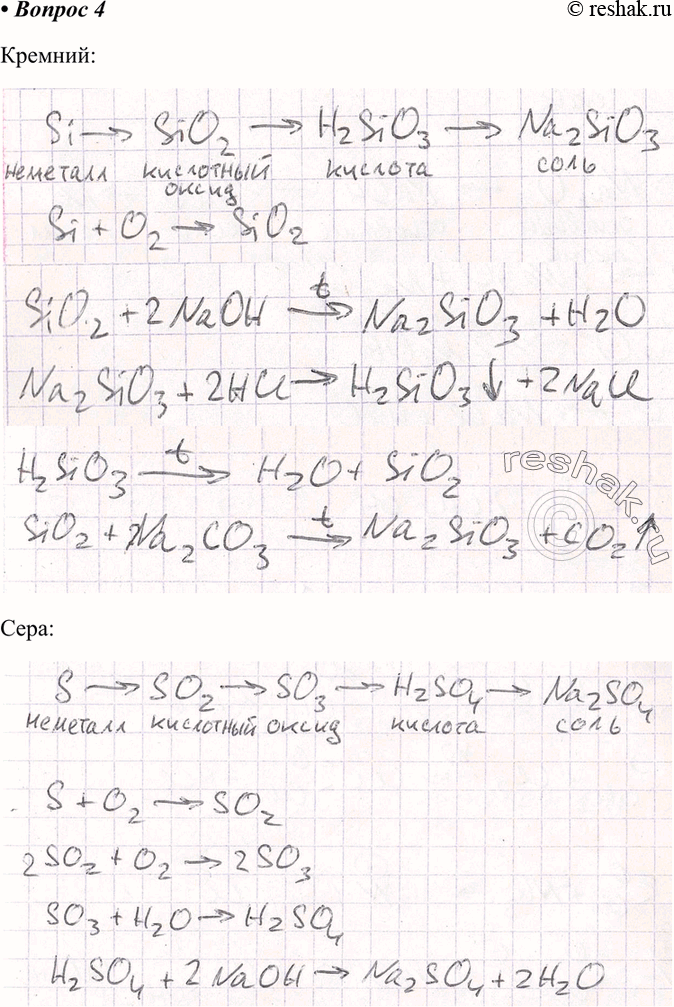 • Вопрос 4 © reshak.ru
Кремний:
Si → SiO₂ → H₂SiO₃ → Na₂SiO₃
неметалл кислотный оксид кислота соль
Si + O₂ → SiO₂
SiO₂ + 2NaOH →ᵗ Na₂SiO₃ + H₂O
Na₂SiO₃ + 2HCl → H₂SiO₃↓ + 2NaCl
H₂SiO₃ →ᵗ H₂O + SiO₂
reshak.ru
©
SiO₂ + Na₂CO₃ →ᵗ Na₂SiO₃ + CO₂↑
Сера:
S → SO₂ → SO₃ → H₂SO₄ → Na₂SO₄
неметалл кислотный оксид кислота соль
S + O₂ → SO₂
2SO₂ + O₂ → 2SO₃
SO₃ + H₂O → H₂SO₄
H₂SO₄ + 2NaOH → Na₂SO₄ + 2H₂O